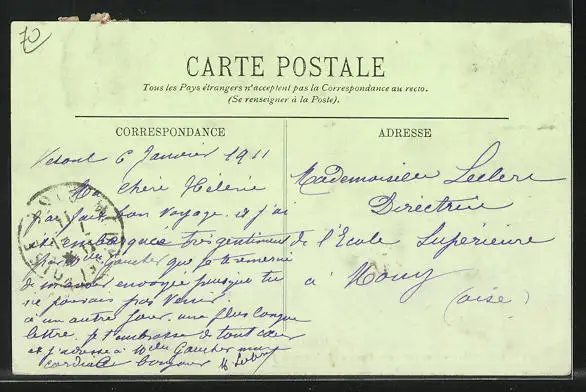 70
CARTE POSTALE
Tous les Pays étrangers n'acceptent pas la Correspondance au recto.
(Se renseigner à la Poste).
CORRESPONDANCE
Vesoul 6 Janvier 1911
Ma chère Hélène
J'ai fait bon voyage, et j'ai
été embarquée très gentiment
par Mlle Gaucher que je remercie
de m'avoir envoyée puisque tu
ne pouvais pas venir.
à un autre jour, une plus longue
lettre, je t'embrasse de tout cœur
et j'adresse à Melle Gaucher mon
cordial bonjour
ADRESSE
Mademoiselle Leclerc
Directrice
de l'Ecole Supérieure
à Mouy
(oise)